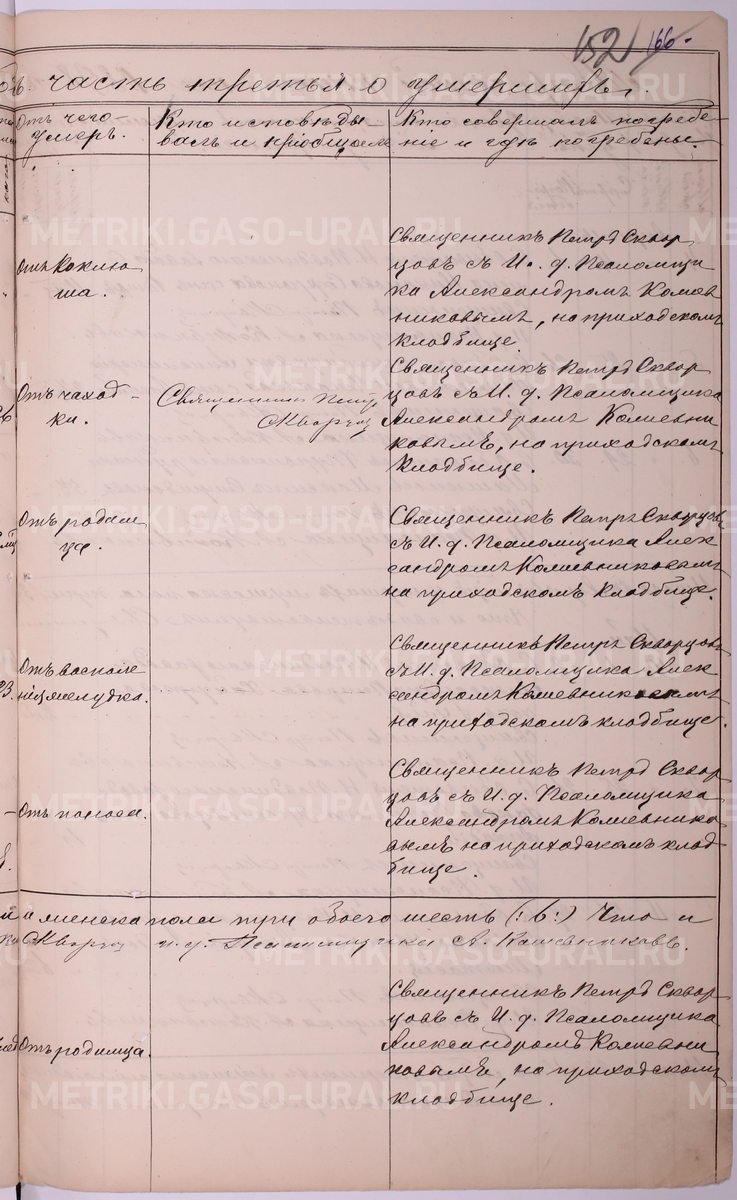 152 166.
часть третья о умершихъ.
Отъ чего
умеръ.
Кто исповѣды
валъ и пріобщалъ
Кто совершалъ погребе
ніе и гдѣ погребены.
Отъ коклю
ша.
Священникъ Петръ Сквор
цовъ съ И. д. Псаломщи
ка Александромъ Кожев
никовымъ, на приходскомъ
кладбище.
Отъ чахот-
ки.
Священникъ Петръ
Скворцов
Священникъ Петръ Сквор
цовъ съ И. д. Псаломщика
Александромъ Кожевни
ковымъ, на приходскомъ
кладбище.
Отъ родим
ца.
Священникъ Петръ Скворцовъ
съ И. д. Псаломщика Алек
сандромъ Кожевниковымъ
на приходскомъ кладбище.
Отъ воспале
нія желудка.
Священникъ Петръ Скворцовъ
съ И. д. Псаломщика Алек
сандромъ Кожевниковымъ
на приходскомъ кладбище.
Отъ поноса.
Священникъ Петръ Сквор
цовъ съ И. д. Псаломщика
Александромъ Кожевнико
вымъ на приходскомъ клад
бище.
и женска пола три обоего шесть (:6:) Что и
Скворцов и. д. Псаломщика А. Кожевниковъ.
Отъ родимца.
Священникъ Петръ Сквор
цовъ съ И. д. Псаломщика
Александромъ Кожевни
ковымъ, на приходскомъ
кладбище.
METRIKI.GASO-URAL.RU